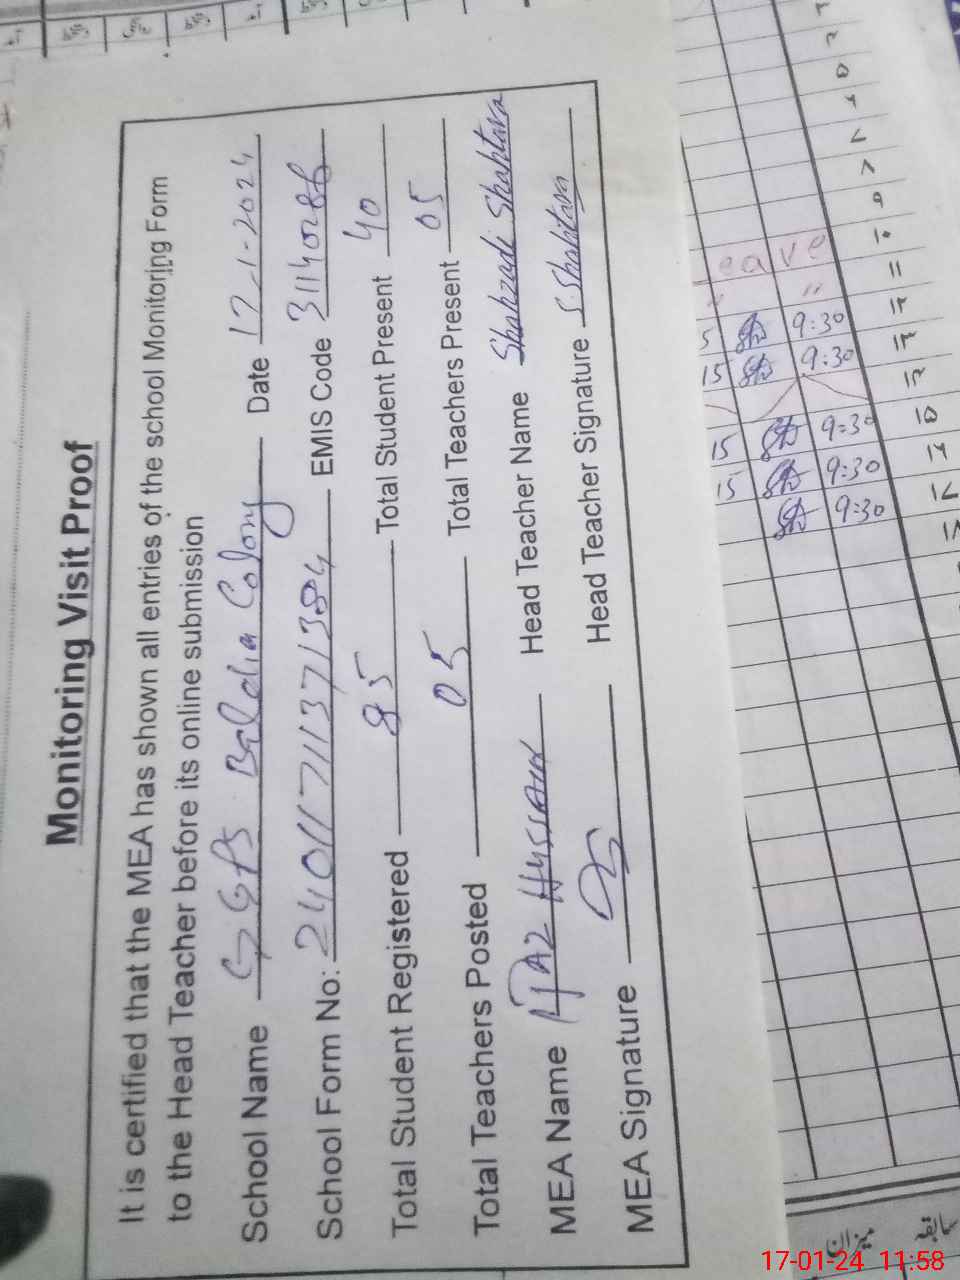 Monitoring Visit Proof
It is certified that the MEA has shown all entries of the school Monitoring Form
to the Head Teacher before its online submission
School Name GGPS Baldia Colony Date 17-1-2024
School Form No: 240117111371384 EMIS Code 31140286
Total Student Registered 85 Total Student Present 40
Total Teachers Posted 05 Total Teachers Present 05
MEA Name IJAZ HUSSAIN Head Teacher Name Shahzadi Shahtara
MEA Signature Head Teacher Signature S.Shahtara
eave
" "
5 9:30
15 9:30
15 9:30
15 9:30
9:30
۵
۶
۷
۸
۹
۱۰
۱۱
۱۲
۱۳
۱۴
۱۵
۱۶
۱۷
میزان
سابقہ
17-01-24 11:58